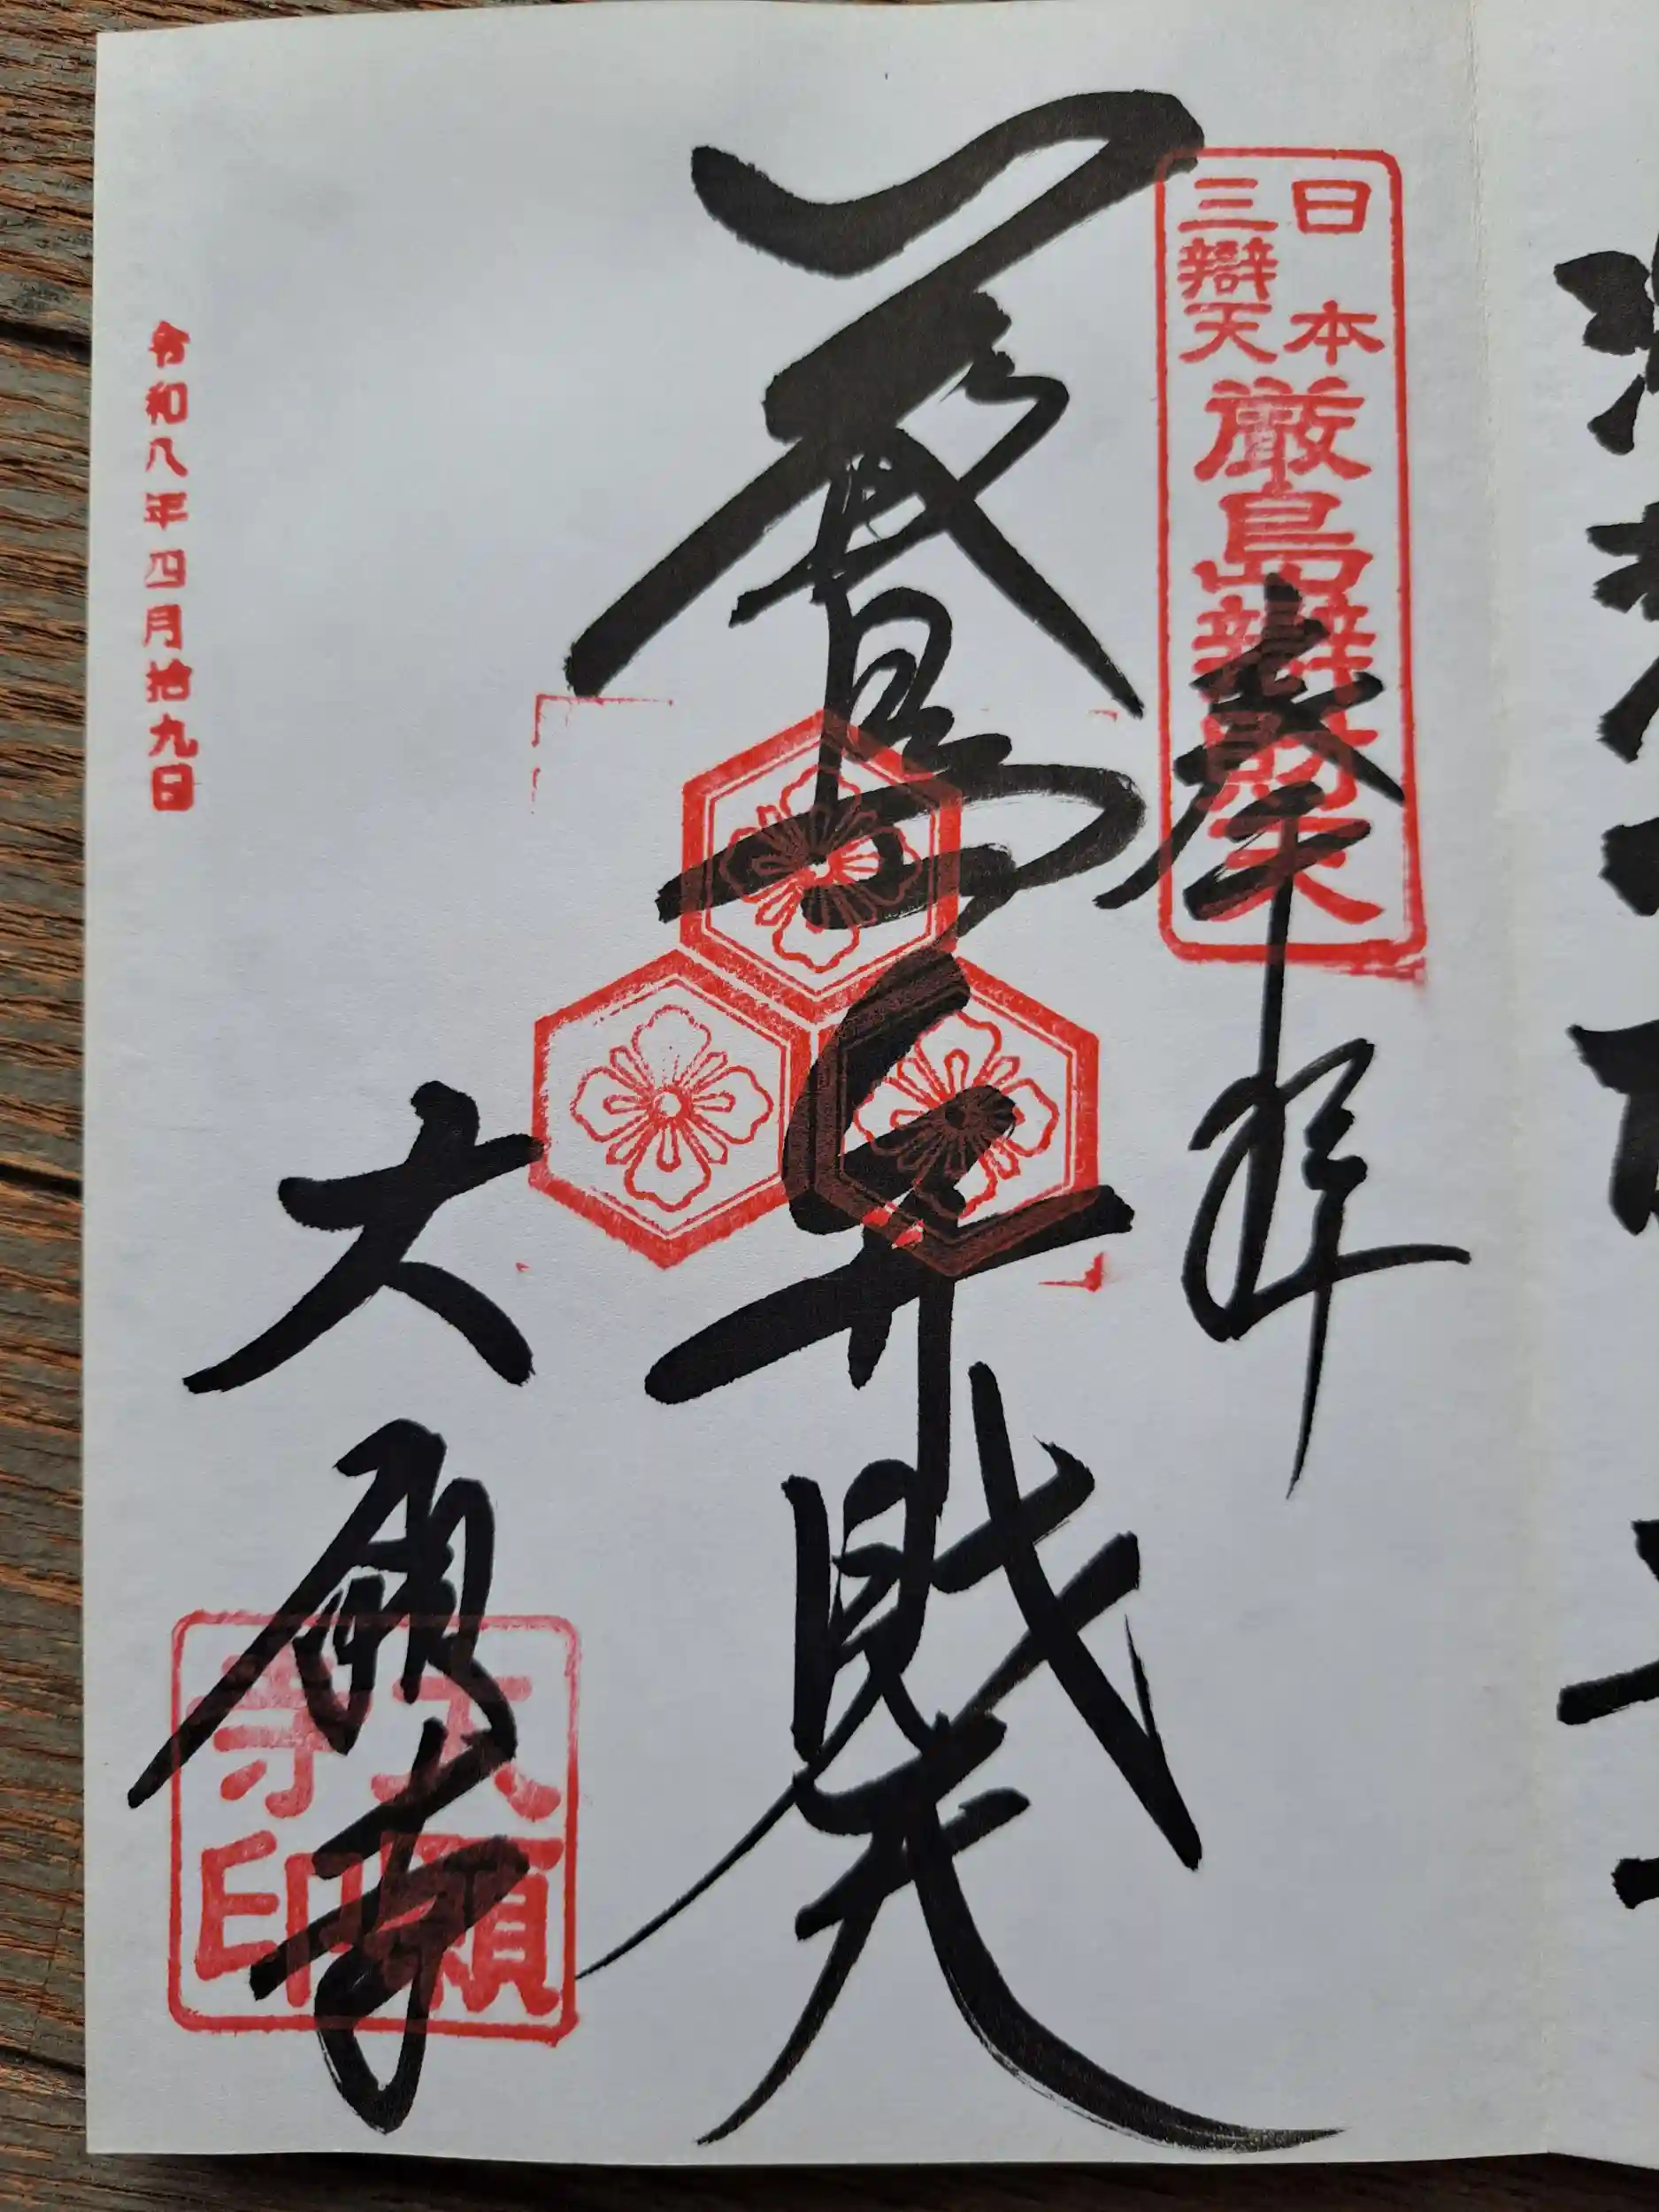 日本
三辯天
厳島辯財天
奉拝
厳島弁財天
大願寺
大願
寺印
令和八年四月拾九日